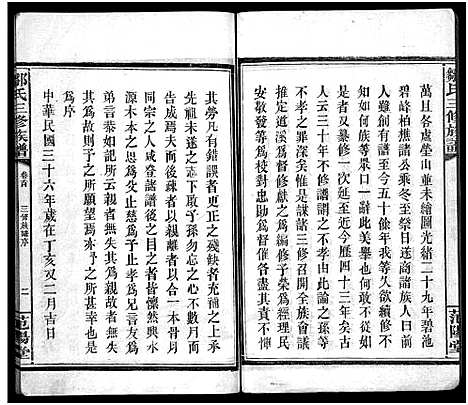 鄒氏三修族譜
萬且各處塋山並未繪圖光緒二十九年碧池
碧峰柏樵諸公乘冬至祭日送商諸族人曰前
人雖創有譜至今五十餘年我等又人欲續修不
知如何族等眾口一辭此美舉也何獨不可
者又是纂修一次後近今歷四十三年矣古
人云三十年不修譜謂之不孝由此論之吾等
不孝之罪深矣惟是謀譜三修召開全族會議
推定道溪為督修獻之為編修子榮為經理民
安敬發等為校對忠助各執其事各負其責
范陽堂
其勞凡有錯誤者更正之殘缺者充補之上承
先祖未遂之志下啟子孫勿忘之心今屆譜成
告成焉夫而後疎者以親離者以合一本骨月
同宗之人咸登諸譜後之諸者皆懍然興
木本水源之思為父止慈為子止孝為兄言友為
弟言恭如記所云親者無失其為親故者無失
其為故則予之所願望焉亦予之所甚幸也是
為序
中華民國三十六年歲在丁亥又二月吉日
鄒氏三修族譜
卷首
三修族譜序
二
范陽堂